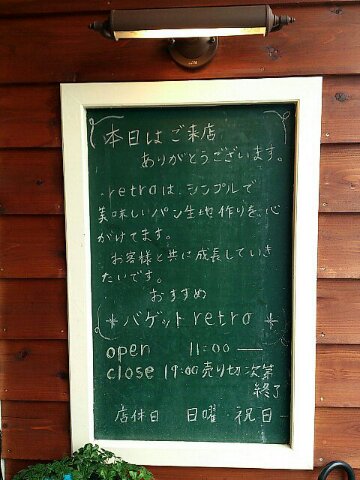 本日はご来店
ありがとうございます。
retroは、シンプルで
美味しいパン生地作りを、心
がけてます。
お客様と共に成長していき
たいです。
おすすめ
＊バゲットretro＊
open 11:00 ―
close 19:00 売り切次第
終了
店休日 日曜・祝日